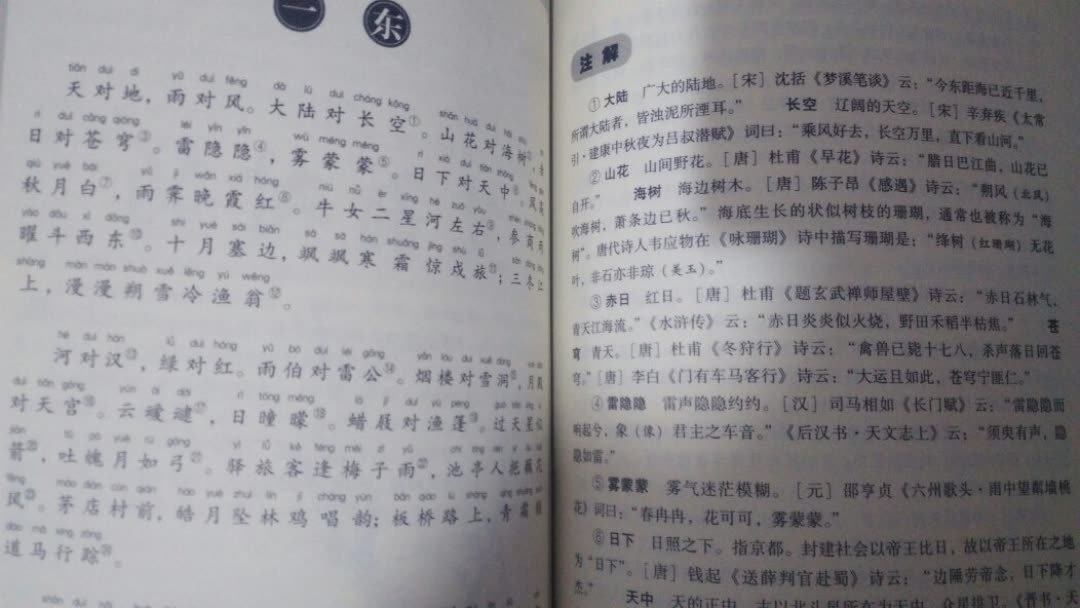 一 东
tiān duì dì yǔ duì fēng dà lù duì cháng kōng shān huā duì hǎi shù
天对地，雨对风。大陆对长空①。山花对海树②，
rì duì cāng qióng léi yǐn yǐn wù méng méng rì xià duì tiān zhōng
日对苍穹③。雷隐隐④，雾蒙蒙⑤。日下对天中⑥。风高
qiū yuè bái yǔ jì wǎn xiá hóng niú nǚ èr xīng hé zuǒ yòu
秋月白⑦，雨霁晚霞红⑧。牛女二星河左右⑨，参商两
yào dǒu xī dōng shí yuè sài biān sà sà hán shuāng jīng shù lǚ
曜斗西东⑩。十月塞边，飒飒寒霜惊戍旅⑪；三冬江
shàng màn màn shuò xuě lěng yú wēng
上，漫漫朔雪冷渔翁⑫。
hé duì hàn lǜ duì hóng yǔ bó duì léi gōng yān lóu duì xuě dòng
河对汉⑬，绿对红。雨伯对雷公⑭。烟楼对雪洞⑮，月殿
duì tiān gōng yún ài dài rì tóng méng là jī duì yú péng
对天宫⑯。云叆叇⑰，日曈曚⑱。蜡屐对渔蓬⑲。过天星似
jiàn tǔ pò yuè rú gōng yì lǚ kè féng méi zǐ yǔ
箭⑳，吐魄月如弓㉑。驿旅客逢梅子雨㉒，池亭人挹藕花
fēng máo diàn cūn qián hào yuè zhuì lín jī chàng yùn bǎn qiáo lù shàng
风㉓。茅店村前，皓月坠林鸡唱韵；板桥路上，青霜锁
dào mǎ xíng zōng
道马行踪㉔。
注解
①大陆 广大的陆地。［宋］沈括《梦溪笔谈》云：“今东距海已近千里，
所谓大陆者，皆浊泥所湮耳。” 长空 辽阔的天空。［宋］辛弃疾《太常
引·建康中秋夜为吕叔潜赋》词曰：“乘风好去，长空万里，直下看山河。”
②山花 山间野花。［唐］杜甫《早花》诗云：“腊日巴江曲，山花已
自开。” 海树 海边树木。［唐］陈子昂《感遇》诗云：“朔风（北风）
吹海树，萧条边已秋。”海底生长的状似树枝的珊瑚，通常也被称为“海
树”。唐代诗人韦应物在《咏珊瑚》诗中描写珊瑚是：“绛树（红珊瑚）无花
叶，非石亦非琼（美玉）。”
③赤日 红日。［唐］杜甫《题玄武禅师屋壁》诗云：“赤日石林气，
青天江海流。”《水浒传》云：“赤日炎炎似火烧，野田禾稻半枯焦。” 苍
穹 青天。［唐］杜甫《冬狩行》诗云：“禽兽已毙十七八，杀声落日回苍
穹。”［唐］李白《门有车马客行》诗云：“大运且如此，苍穹宁匪仁。”
④雷隐隐 雷声隐隐约约。［汉］司马相如《长门赋》云：“雷隐隐而
响起兮，象（像）君主之车音。”《后汉书·天文志上》云：“须臾有声，隐
隐如雷。”
⑤雾蒙蒙 雾气迷茫模糊。［元］邵亨贞《六州歌头·雨中望鄰墙桃
花》词曰：“春冉冉，花可可，雾蒙蒙。”
⑥日下 日照之下。指京都。封建社会以帝王比日，故以帝王所在之地
为“日下”。［唐］钱起《送薛判官赴蜀》诗云：“边陲劳帝念，日下降才
杰。”
天中 天的正中。古以北斗星所在为天中，众星拱卫。《晋书·天